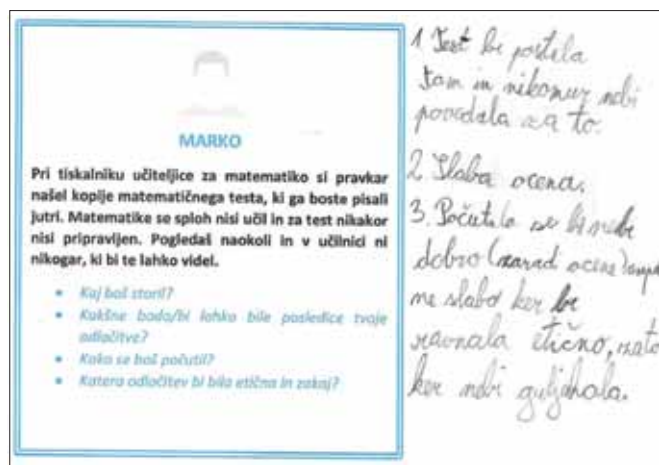 MARKO
Pri tiskalniku učiteljice za matematiko si pravkar
našel kopije matematičnega testa, ki ga boste pisali
jutri. Matematike se sploh nisi učil in za test nikakor
nisi pripravljen. Pogledaš naokoli in v učilnici ni
nikogar, ki bi te lahko videl.
• Kaj boš storil?
• Kakšne bodo/bi lahko bile posledice tvoje
odločitve?
• Kako se boš počutil?
• Katera odločitev bi bila etična in zakaj?
1 Test bi postila
tam in nikomur nebi
povedala za to.
2 Slaba ocena.
3. Počutila se bi nebi
dobro (zarad ocene)
ne slabo ker bi
ravnala etično, zato
ker nebi guljfala.